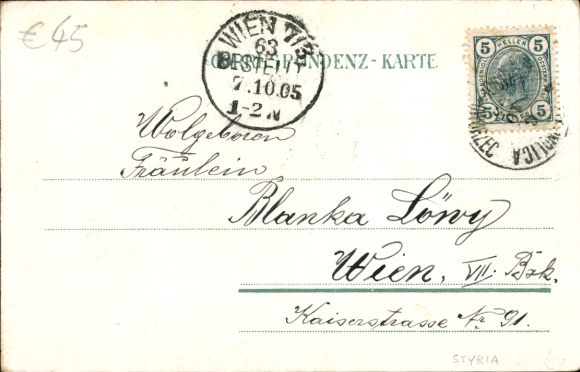 €45
WIEN 7/3
63
BESTELLT
7.10.05
1-2 N
CORRESPONDENZ-KARTE
5 HELLER 5
5 5
Wolgeboren
Fräulein
Blanka Löwy
Wien, VII. Bzk.
Kaiserstrasse Nr 91.
STYRIA